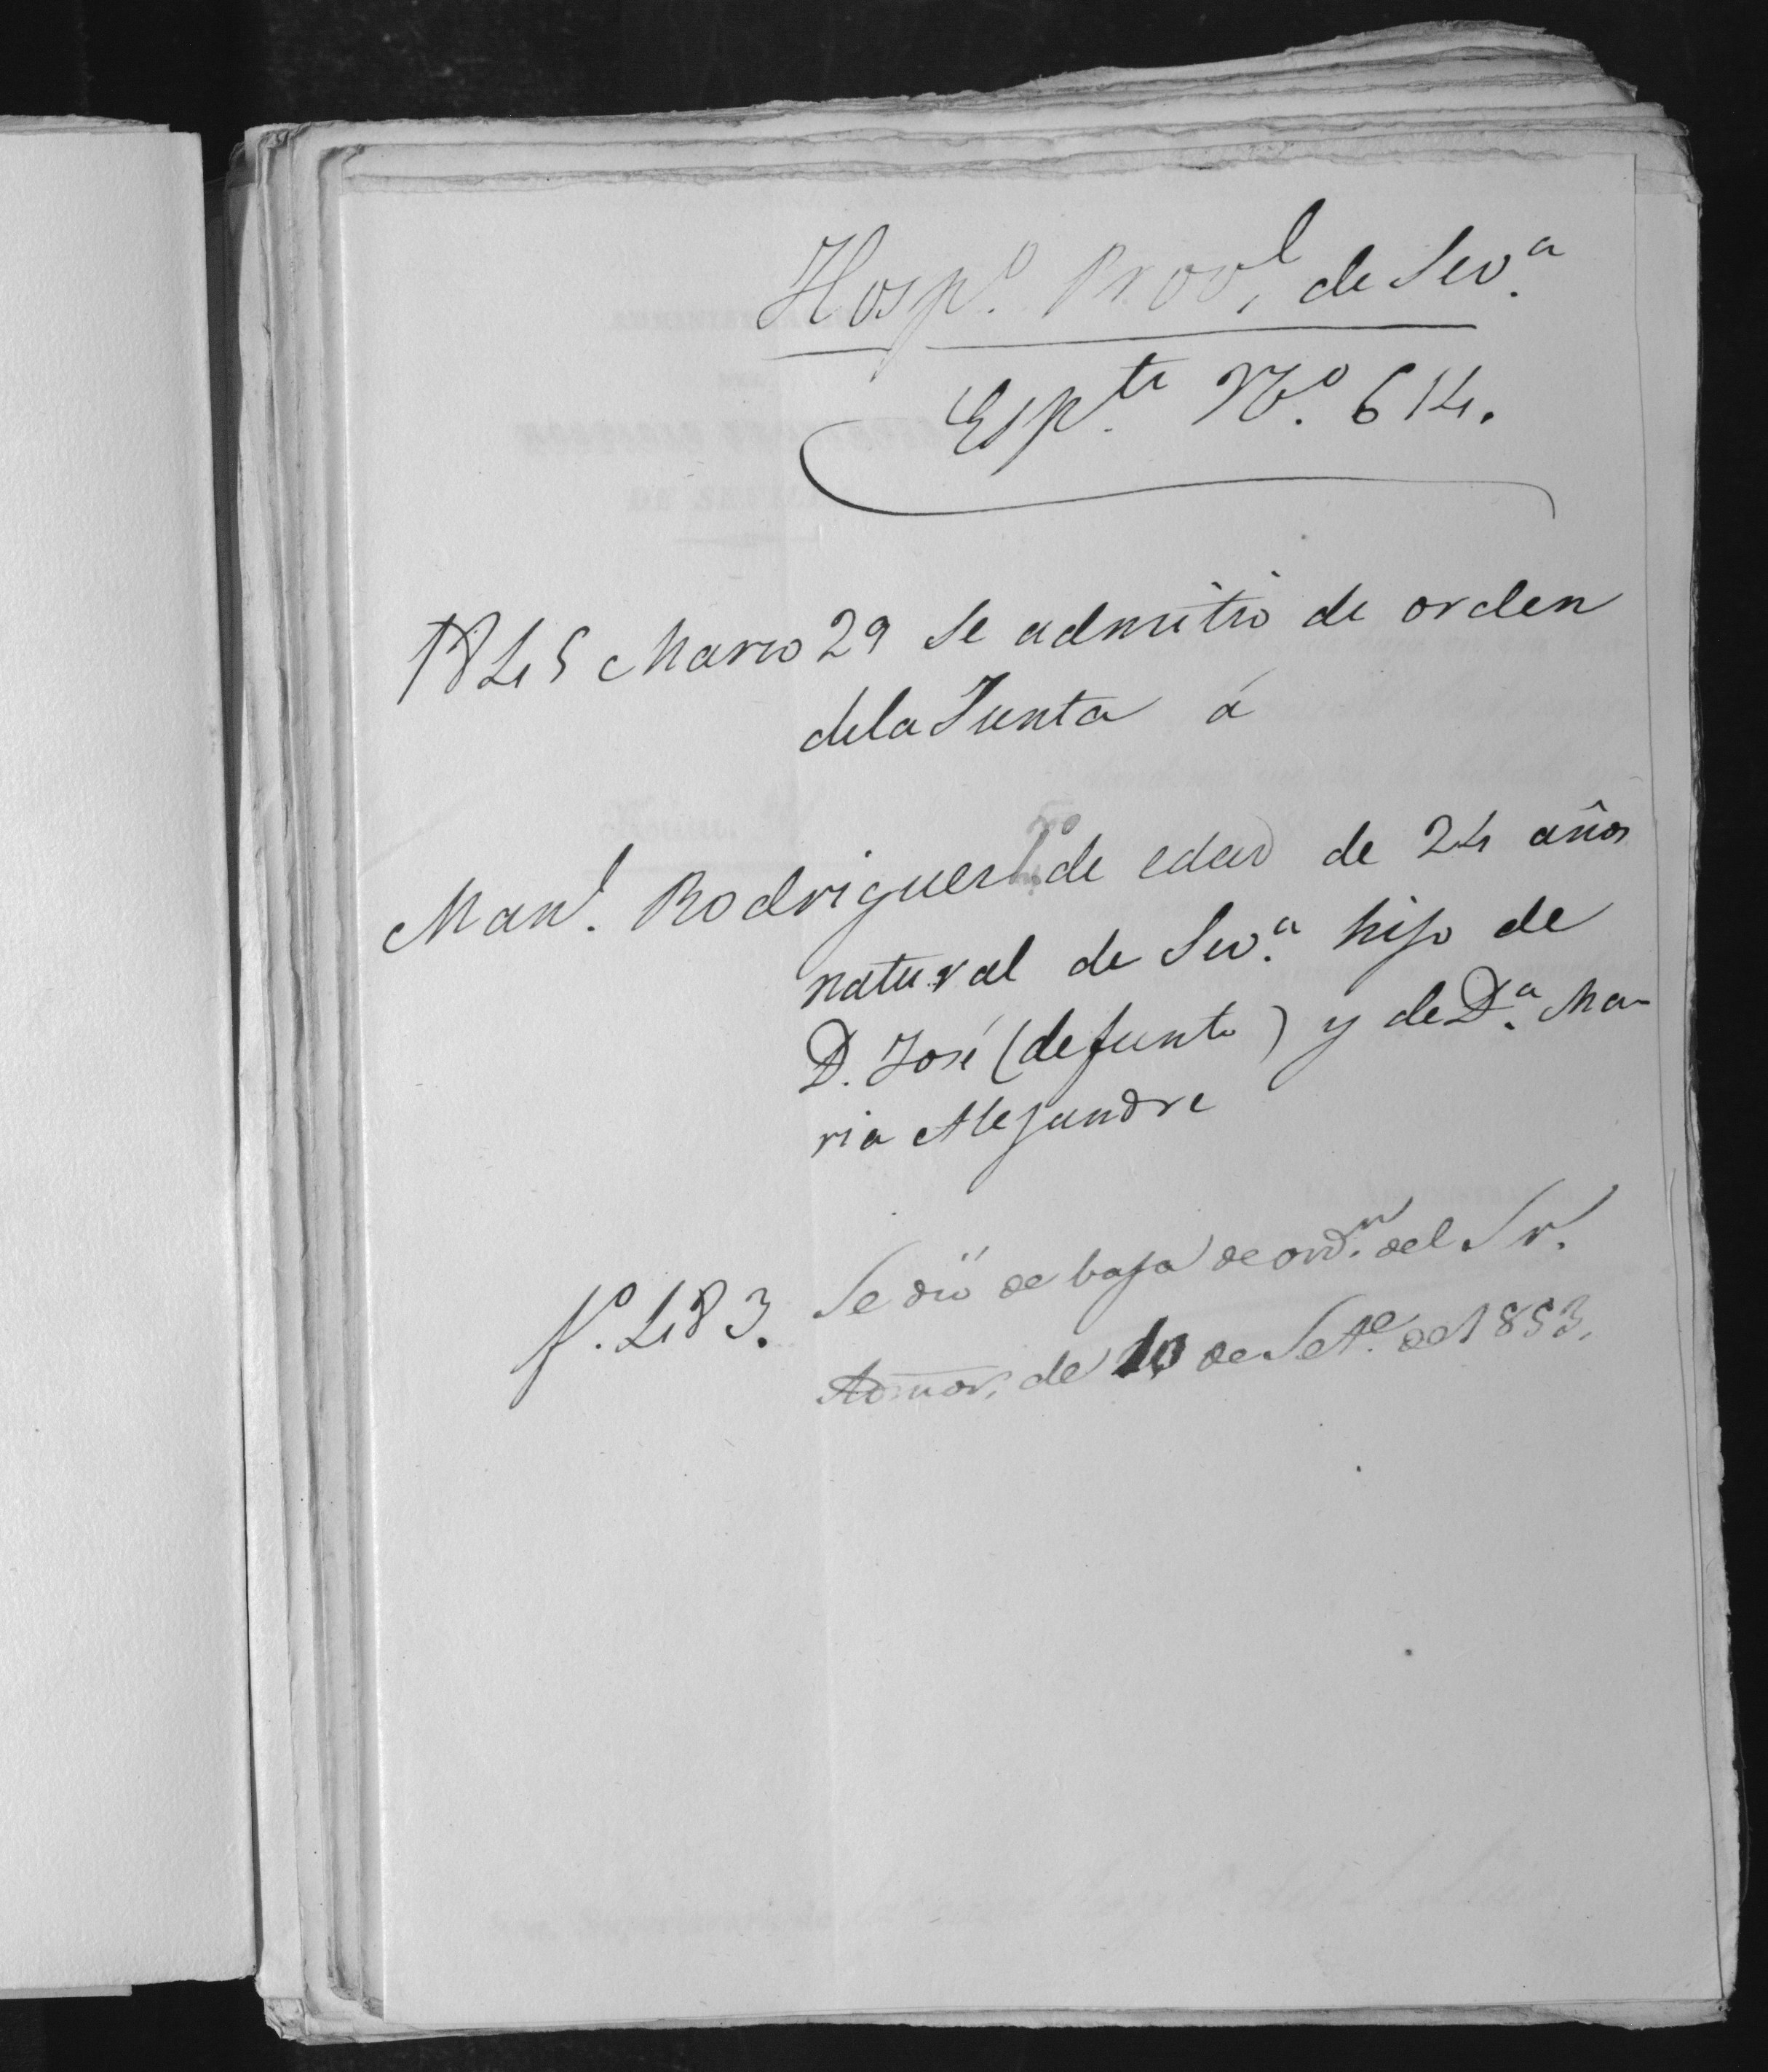 Hosp.º Prov.l de Sev.a
Esp.te N.º 614.
1845 Marzo 29 Se admitió de orden
dela Junta á
Man.l Rodriguez de edad de 24 años
natural de Sev.a hijo de
D. José (defunto) y de D.a Ma-
ria Alejandre
f.º 483. Se dió de baja de ord.n del Sr.
Admor. de 10 de Set.e de 1853.